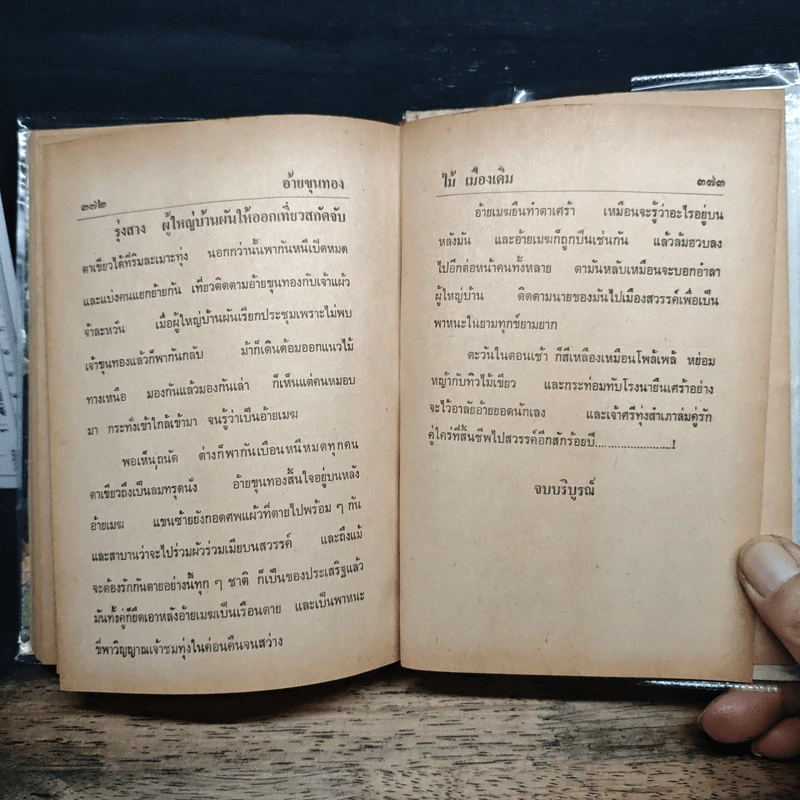 ๓๗๒ อ้ายขุนทอง
รุ่งสาง ผู้ใหญ่บ้านผันให้ออกเที่ยวสกัดจับ
ตาเขียวได้ที่ริมละเมาะทุ่ง นอกกว่านั้นพากันหนีเปิดหมด
และแบ่งคนแยกย้ายกัน เที่ยวติดตามอ้ายขุนทองกับเจ้าแผ้ว
จ้าละหวั่น เมื่อผู้ใหญ่บ้านผันเรียกประชุมเพราะไม่พบ
เจ้าขุนทองแล้วก็พากันกลับ ม้าก็เดินด้อมออกแนวไม้
ทางเหนือ มองกันแล้วมองกันเล่า ก็เห็นแต่คนหมอบ
มา กระทั่งเข้าใกล้เข้ามา จนรู้ว่าเป็นอ้ายเมฆ
พอเห็นถนัด ต่างก็พากันเบือนหนีหมดทุกคน
ตาเขียวถึงเป็นลมทรุดนั่ง อ้ายขุนทองสิ้นใจอยู่บนหลัง
อ้ายเมฆ แขนซ้ายยังกอดศพแผ้วที่ตายไปพร้อม ๆ กัน
และสาบานว่าจะไปร่วมผัวร่วมเมียบนสวรรค์ และถึงแม้
จะต้องรักกันตายอย่างนี้ทุก ๆ ชาติ ก็เป็นของประเสริฐแล้ว
มันทั้งคู่ก็ยึดเอาหลังอ้ายเมฆเป็นเรือนตาย และเป็นพาหนะ
ขี่พาวิญญาณเจ้าชมทุ่งในค่อนคืนจนสว่าง
ไม้ เมืองเดิม ๓๗๓
อ้ายเมฆยืนทำตาเศร้า เหมือนจะรู้ว่าอะไรอยู่บน
หลังมัน และอ้ายเมฆก็ถูกปืนเช่นกัน แล้วล้มฮวบลง
ไปอีกต่อหน้าคนทั้งหลาย ตามันหลับเหมือนจะบอกอำลา
ผู้ใหญ่บ้าน ติดตามนายของมันไปเมืองสวรรค์เพื่อเป็น
พาหนะในยามทุกข์ยามยาก
ตะวันในตอนเช้า ก็สีเหลืองเหมือนโพล้เพล้ หย่อม
หญ้ากับทิวไม้เขียว และกระท่อมทับโรงนายืนเศร้าอย่าง
จะไว้อาลัยอ้ายยอดนักเลง และเจ้าศรีทุ่งสำเภาล่มคู่รัก
คู่ใคร่ที่สิ้นชีพไปสวรรค์อีกสักร้อยปี......................!
จบบริบูรณ์